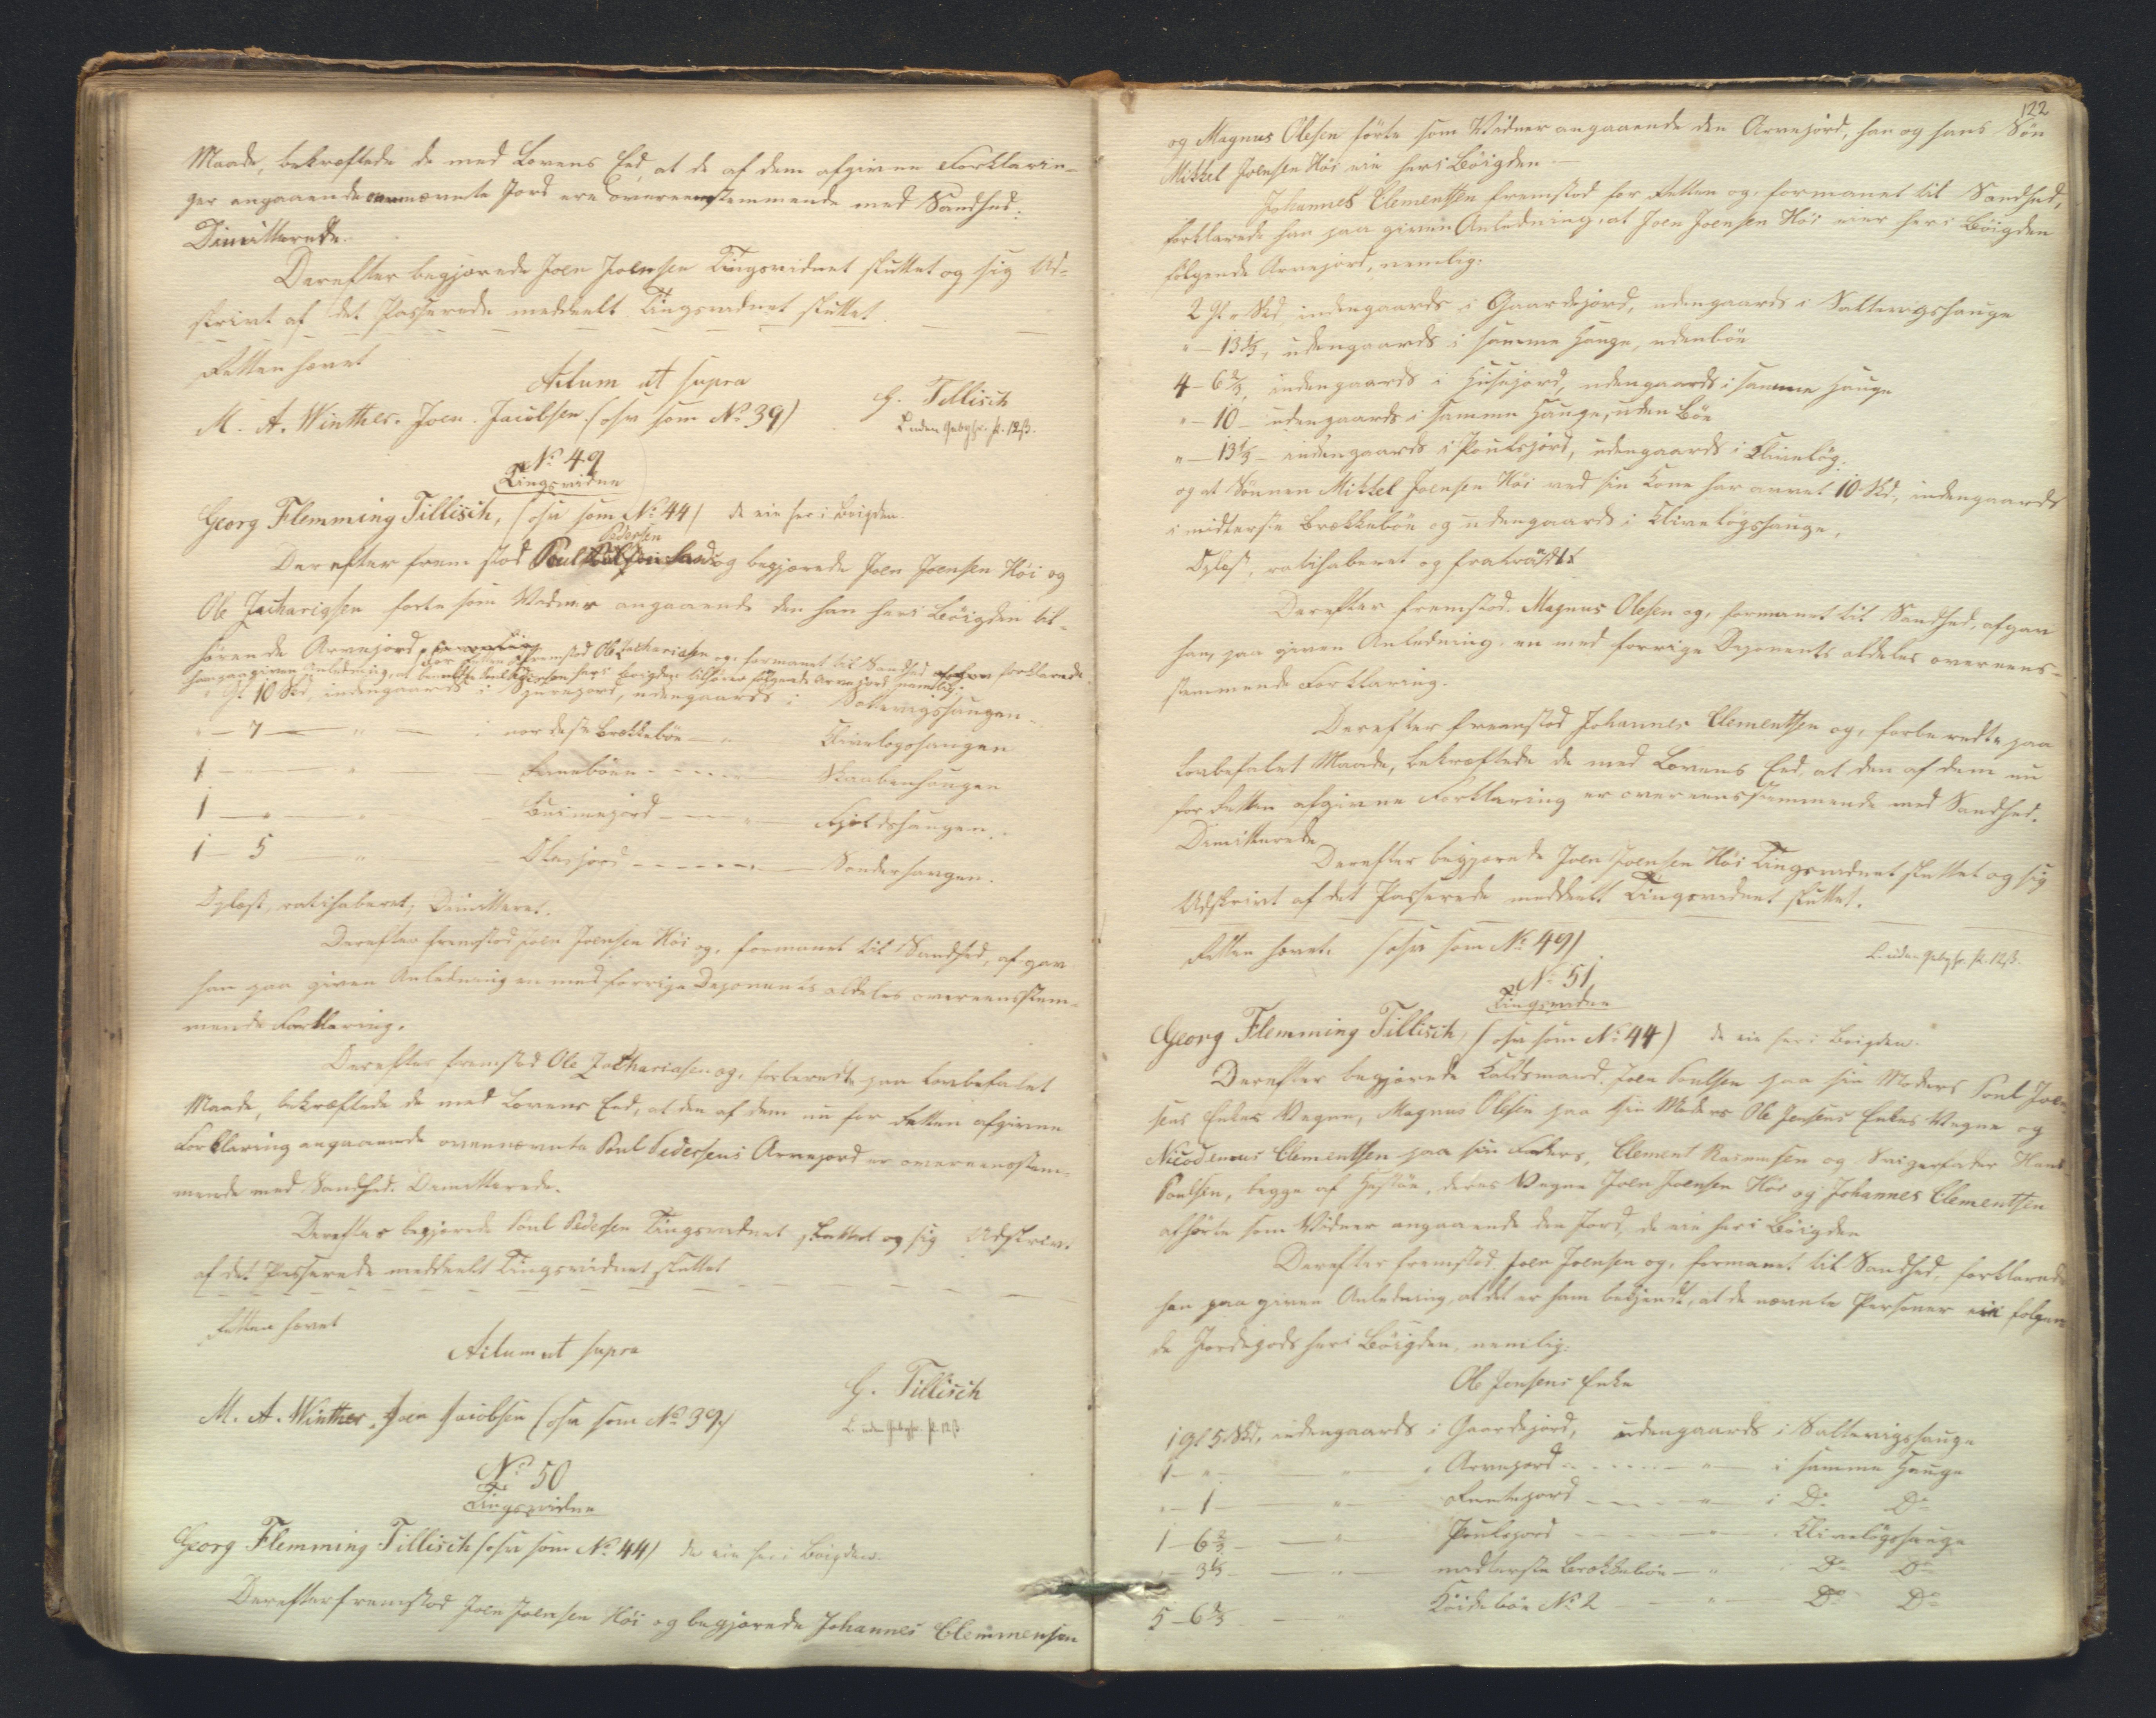 Maade, bekræftede de med Lovens Eed, at de af dem afgivne Forklarin-
ger angaaende ovennævnte Jord ere overeensstemmende med Sandhed.
Dimitterede.
Derefter begjærede Joen Joensen Tingsvidnet sluttet og sig Ud-
skrivt af det Passerede meddeelt. Tingsvidnet sluttet.
Retten hævet
Actum ut supra
G. Tillisch
M. A. Winther. Joen Jacobsen (osv som No 39)
L. uden Gebyhr. St. 12 ß.
No 49
Tingsvidne
Georg Flemming Tillisch, (osv som No 44) de eie her i Bøigden.
Pedersen
Derefter fremstod Poul og begjærede Joen Joensen Høi og
Ole Zachariasen førte som Vidner angaaende den ham her i Bøigden til-
hørende Arvejord
for Retten fremstod Ole Zachariasen og, formanet til Sandhed forklarede
han paa given Anledning, at Poul Pedersen her i Bøigden tilhører følgende Arvejord nemlig:
1 Gl 10 Skd indengaards i jord, udengaards i Saltevigshaugen
" – 7 — " — i nordeste Brekkebøe — " Klivelogshaugen
1 — " — bøen - - - Skaabenhaugen
1 — " — jord - - - " — Fjeldshaugen.
1 – 5 " — Olesjord - - - - - Sønderhaugen.
Oplæst, ratihaberet; Dimitteret.
Derefter fremstod Joen Joensen Høi og, formanet til Sandhed, afgav
han paa given Anledning en med forrige Deponents aldeles overeensstem-
mende Forklaring.
Derefter fremstod Ole Zachariasen og, forberedte paa lovbefalet
Maade, bekræftede de med Lovens Eed, at den af dem nu for Retten afgivne
Forklaring angaaende ovennævnte Poul Pedersens Arvejord er overeensstem-
mende med Sandhed. Dimitterede.
Derefter begjærede Poul Pedersen Tingsvidnet sluttet og sig Udskrivt
af det Passerede meddeelt Tingsvidnet sluttet
Retten hævet
Actum ut supra
G. Tillisch
M. A. Winther. Joen Jacobsen (osv som No 39)
L. uden Gebyhr. St. 12 ß.
No 50
Tingsvidne
Georg Flemming Tillisch (osv som No 44) de eie her i Bøigden.
Derefter fremstod Joen Joensen Høi og begjærede Johannes Clemmensen
122
og Magnus Olesen førte som Vidner angaaende den Arvejord, han og hans Søn
Mikkel Joensen Høi eie her i Bøigden —
Johannes Clementsen fremstod for Retten og, formanet til Sandhed,
forklarede han paa given Anledning, at Joen Joensen Høi eier her i Bøigden
følgende Arvejord, nemlig:
2 Gl " Skd indengaards i Gaardejord, udengaards i Saltevigshauge
" – 13 1/3, udengaards i samme Hauge, uden bøe
4 – 6 2/3, indengaards i Husejord, udengaards i samme Hauge
" – 10 – udengaards i samme Hauge, uden Bøe
" – 13 1/3 – indengaards i Poulsjord, udengaards i Kliveløg.
og at Sønnen Mikkel Joensen Høi ved sin Kone har arvet 10 Skd, indengaards
i midterste Brekkebøe og udengaards i Kliveløgshauge,
Oplæst, ratihaberet og fratraadt.
Derefter fremstod Magnus Olesen og, formanet til Sandhed, afgav
han, paa given Anledning, en med forrige Deponents aldeles overeens-
stemmende Forklaring.
Derefter fremstod Johannes Clementsen og, forberedte paa
lovbefalet Maade, bekræftede de med Lovens Eed, at den af dem nu
for Retten afgivne Forklaring er overeensstemmende med Sandhed.
Dimitterede
Derefter begjærede Joen Joensen Høi Tingsvidnet sluttet og sig
Udskrivt af det Passerede meddeelt Tingsvidnet sluttet.
Retten hævet. (osv som No 49)
L. uden Gebyhr. St. 12 ß.
No 51
Tingsvidne
Georg Flemming Tillisch, (osv som No 44) de eie her i Bøigden.
Derefter begjærede Kaldsmand Joen Poulsen paa sin Moders Poul Joen-
sens Enkes Vegne, Magnus Olesen paa sin Moders Ole Jensens Enkes Vegne og
Nicodemus Clementsen paa sin Faders, Clement Rasmusen og Svigerfader Hans
Poulsen, begge af , deres Vegne Joen Joensen Høi og Johannes Clementsen
afhørte som Vidner angaaende den Jord, de eie her i Bøigden
Derefter fremstod Joen Joensen og, formanet til Sandhed, forklarede
han paa given Anledning, at det er ham bekjendt, at de nævnte Personer eie følgen-
de Jordegods her i Bøigden, nemlig:
Ole Jensens Enke
1 Gl 5 Skd, indengaards i Gaardejord, udengaards i Saltevigshauge
1 – " — " i Arvejord - - - - " — i samme Hauge
" – 1 — " — jord - - - " — i Do Do
1 – 6 2/3 — " — Poulsjord - - - " — Kliveløgshauge
" – 3 1/3 — " — midterste Brekkebøe — " Do Do
5 – 6 2/3 — bøe No 2 — " — Do Do